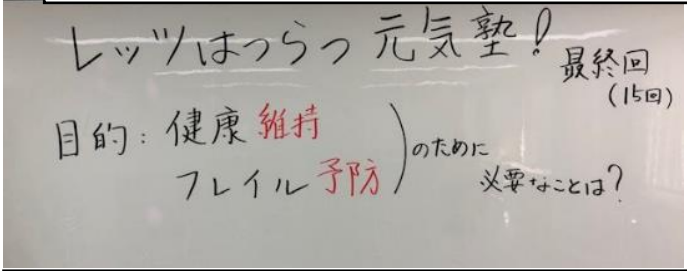 レッツはつらつ元気塾!
最終回
(15回)
目的:健康維持
フレイル予防
のために
必要なことは?